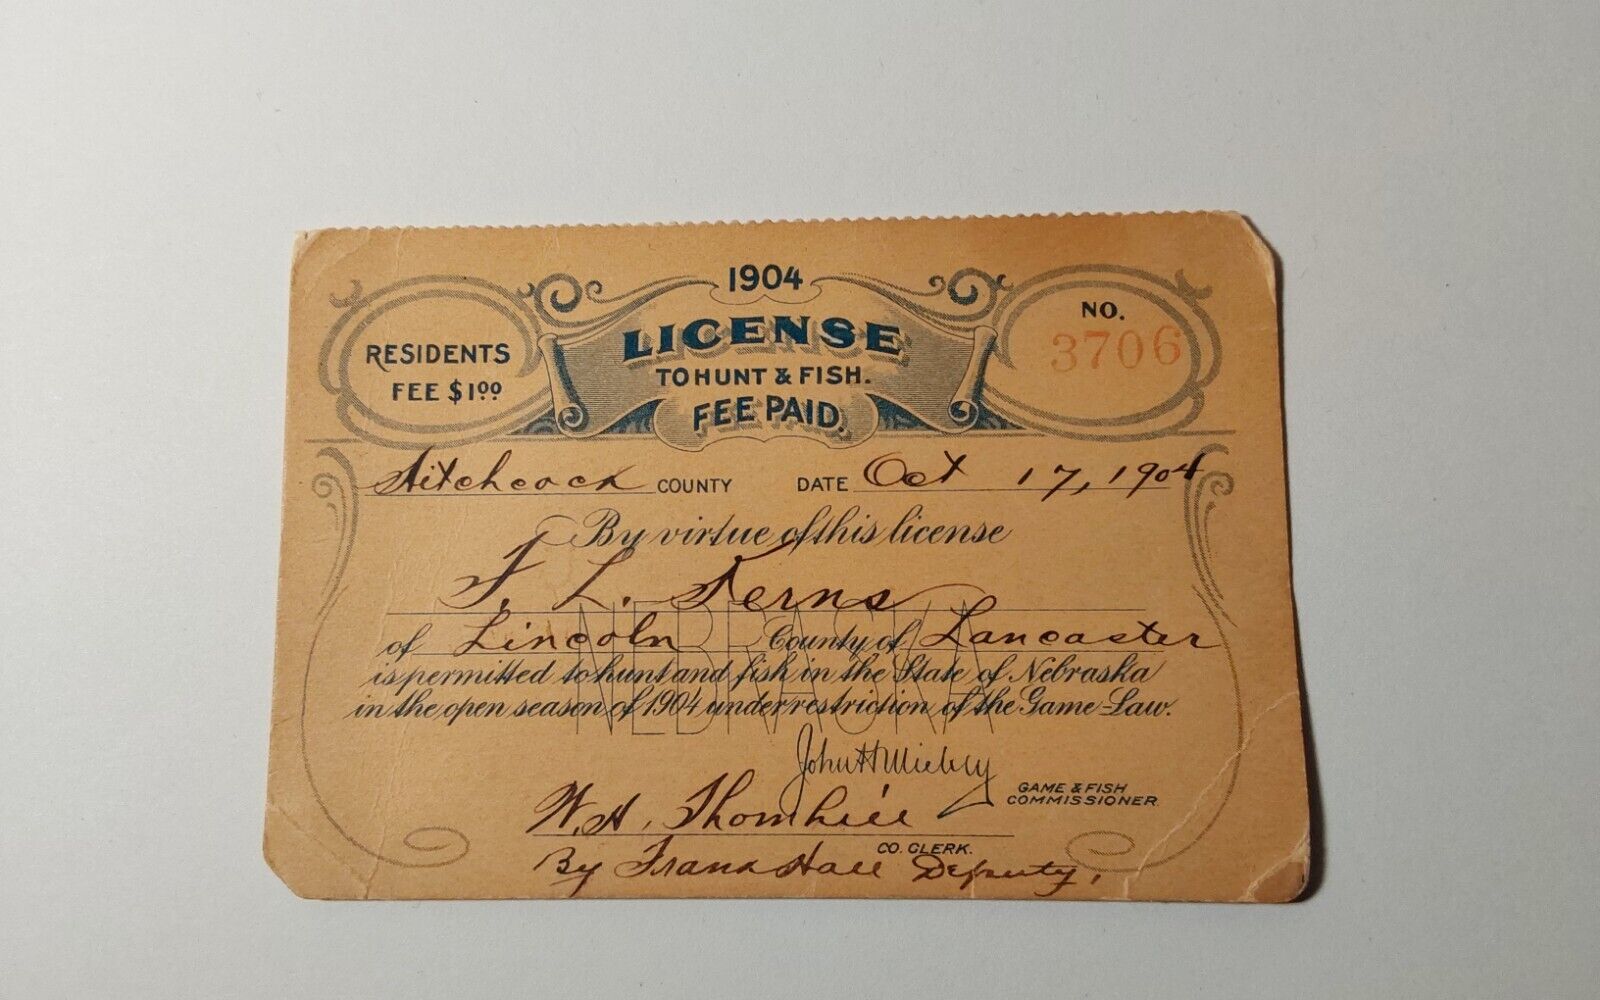 1904
LICENSE
TO HUNT & FISH.
FEE PAID.
RESIDENTS
FEE $1.00
NO.
3706
Hitchcock COUNTY DATE Oct 17, 1904
By virtue of this license
F. L. Kerns
of Lincoln County of Lancaster
is permitted to hunt and fish in the State of Nebraska
in the open season of 1904 under restriction of the Game Law.
NEBRASKA
NEBRASKA
John H Mickey
GAME & FISH
COMMISSIONER.
W. A. Thornhill
CO. CLERK.
By Frank Hall Deputy,